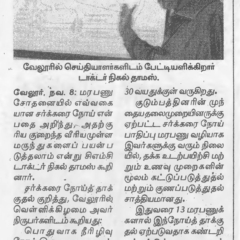 வேலூரில் செய்தியாளர்களிடம் பேட்டியளிக்கிறார்
டாக்டர் நிகல் தாமஸ்.
வேலூர், நவ. 8: மரபணு
சோதனையில் எவ்வகை
யான சர்க்கரை நோய் என்
பதை அறிந்து, அதற்கு
ரிய குறைந்த வீரியமுள்ள
மருந்துகளைப் பயன்ப
டுத்தலாம் என்று சிஎம்சி
டாக்டர் நிகல் தாமஸ் கூறி
னார்.
சர்க்கரை நோய்த் தாக்
குதல் குறித்து, வேலூரில்
வெள்ளிக்கிழமை அவர்
நிருபர்களிடம் கூறியது:
பொதுவாக நீரிழிவு
30 வயதுக்குள் வருகிறது.
குடும்பத்தினரின் முந்
தைய தலைமுறையினருக்கு
ஏற்பட்ட சர்க்கரை நோய்
பாதிப்பு மரபணு வழியாக
இவர்களுக்கு வரும் நிலை
யில், தக்க உடற்பயிற்சி மற்
றும் உணவு முறைகளின்
மூலம் கட்டுப்படுத்துதல்
மற்றும் குணப்படுத்துதல்
சாத்தியமானது.
இதுவரை 13 மரபணுக்
களால் இந்நோய்த் தாக்கு
தல் ஏற்படுவதாக கண்டறி